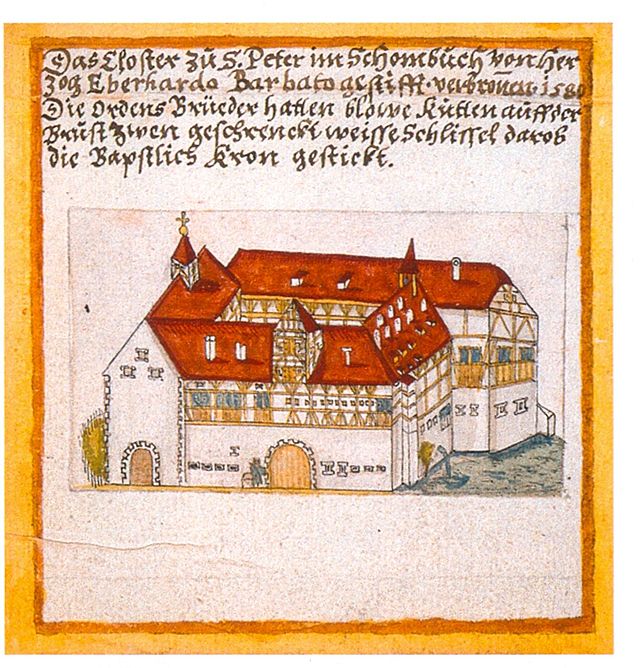 Das Closter zů S. Peter im Schonbuch von Her
zog Eberhardo Barbato gestifft. verbronnen. 1580
Die Ordens Brueder hatten blowe Kutten auff der
Brust zwen geschrenckt weisse Schlissel darob
die Bapstlich Kron gestickt.